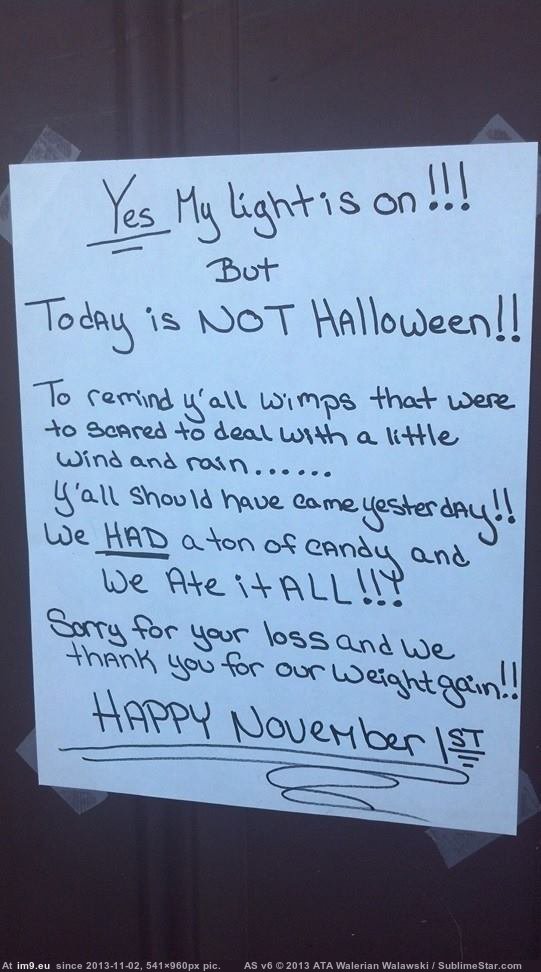 Yes My light is on!!!
But
Today is NOT Halloween!!
To remind y'all wimps that were
to scared to deal with a little
wind and rain......
Y'all should have came yesterday!!
We HAD a ton of candy and
We Ate it ALL!!!
Sorry for your loss and we
thank you for our weight gain!!
HAPPY November 1ST
At im9.eu since 2013-11-02, 541×960px pic. AS v6 © 2013 ATA Walerian Walawski / SublimeStar.com